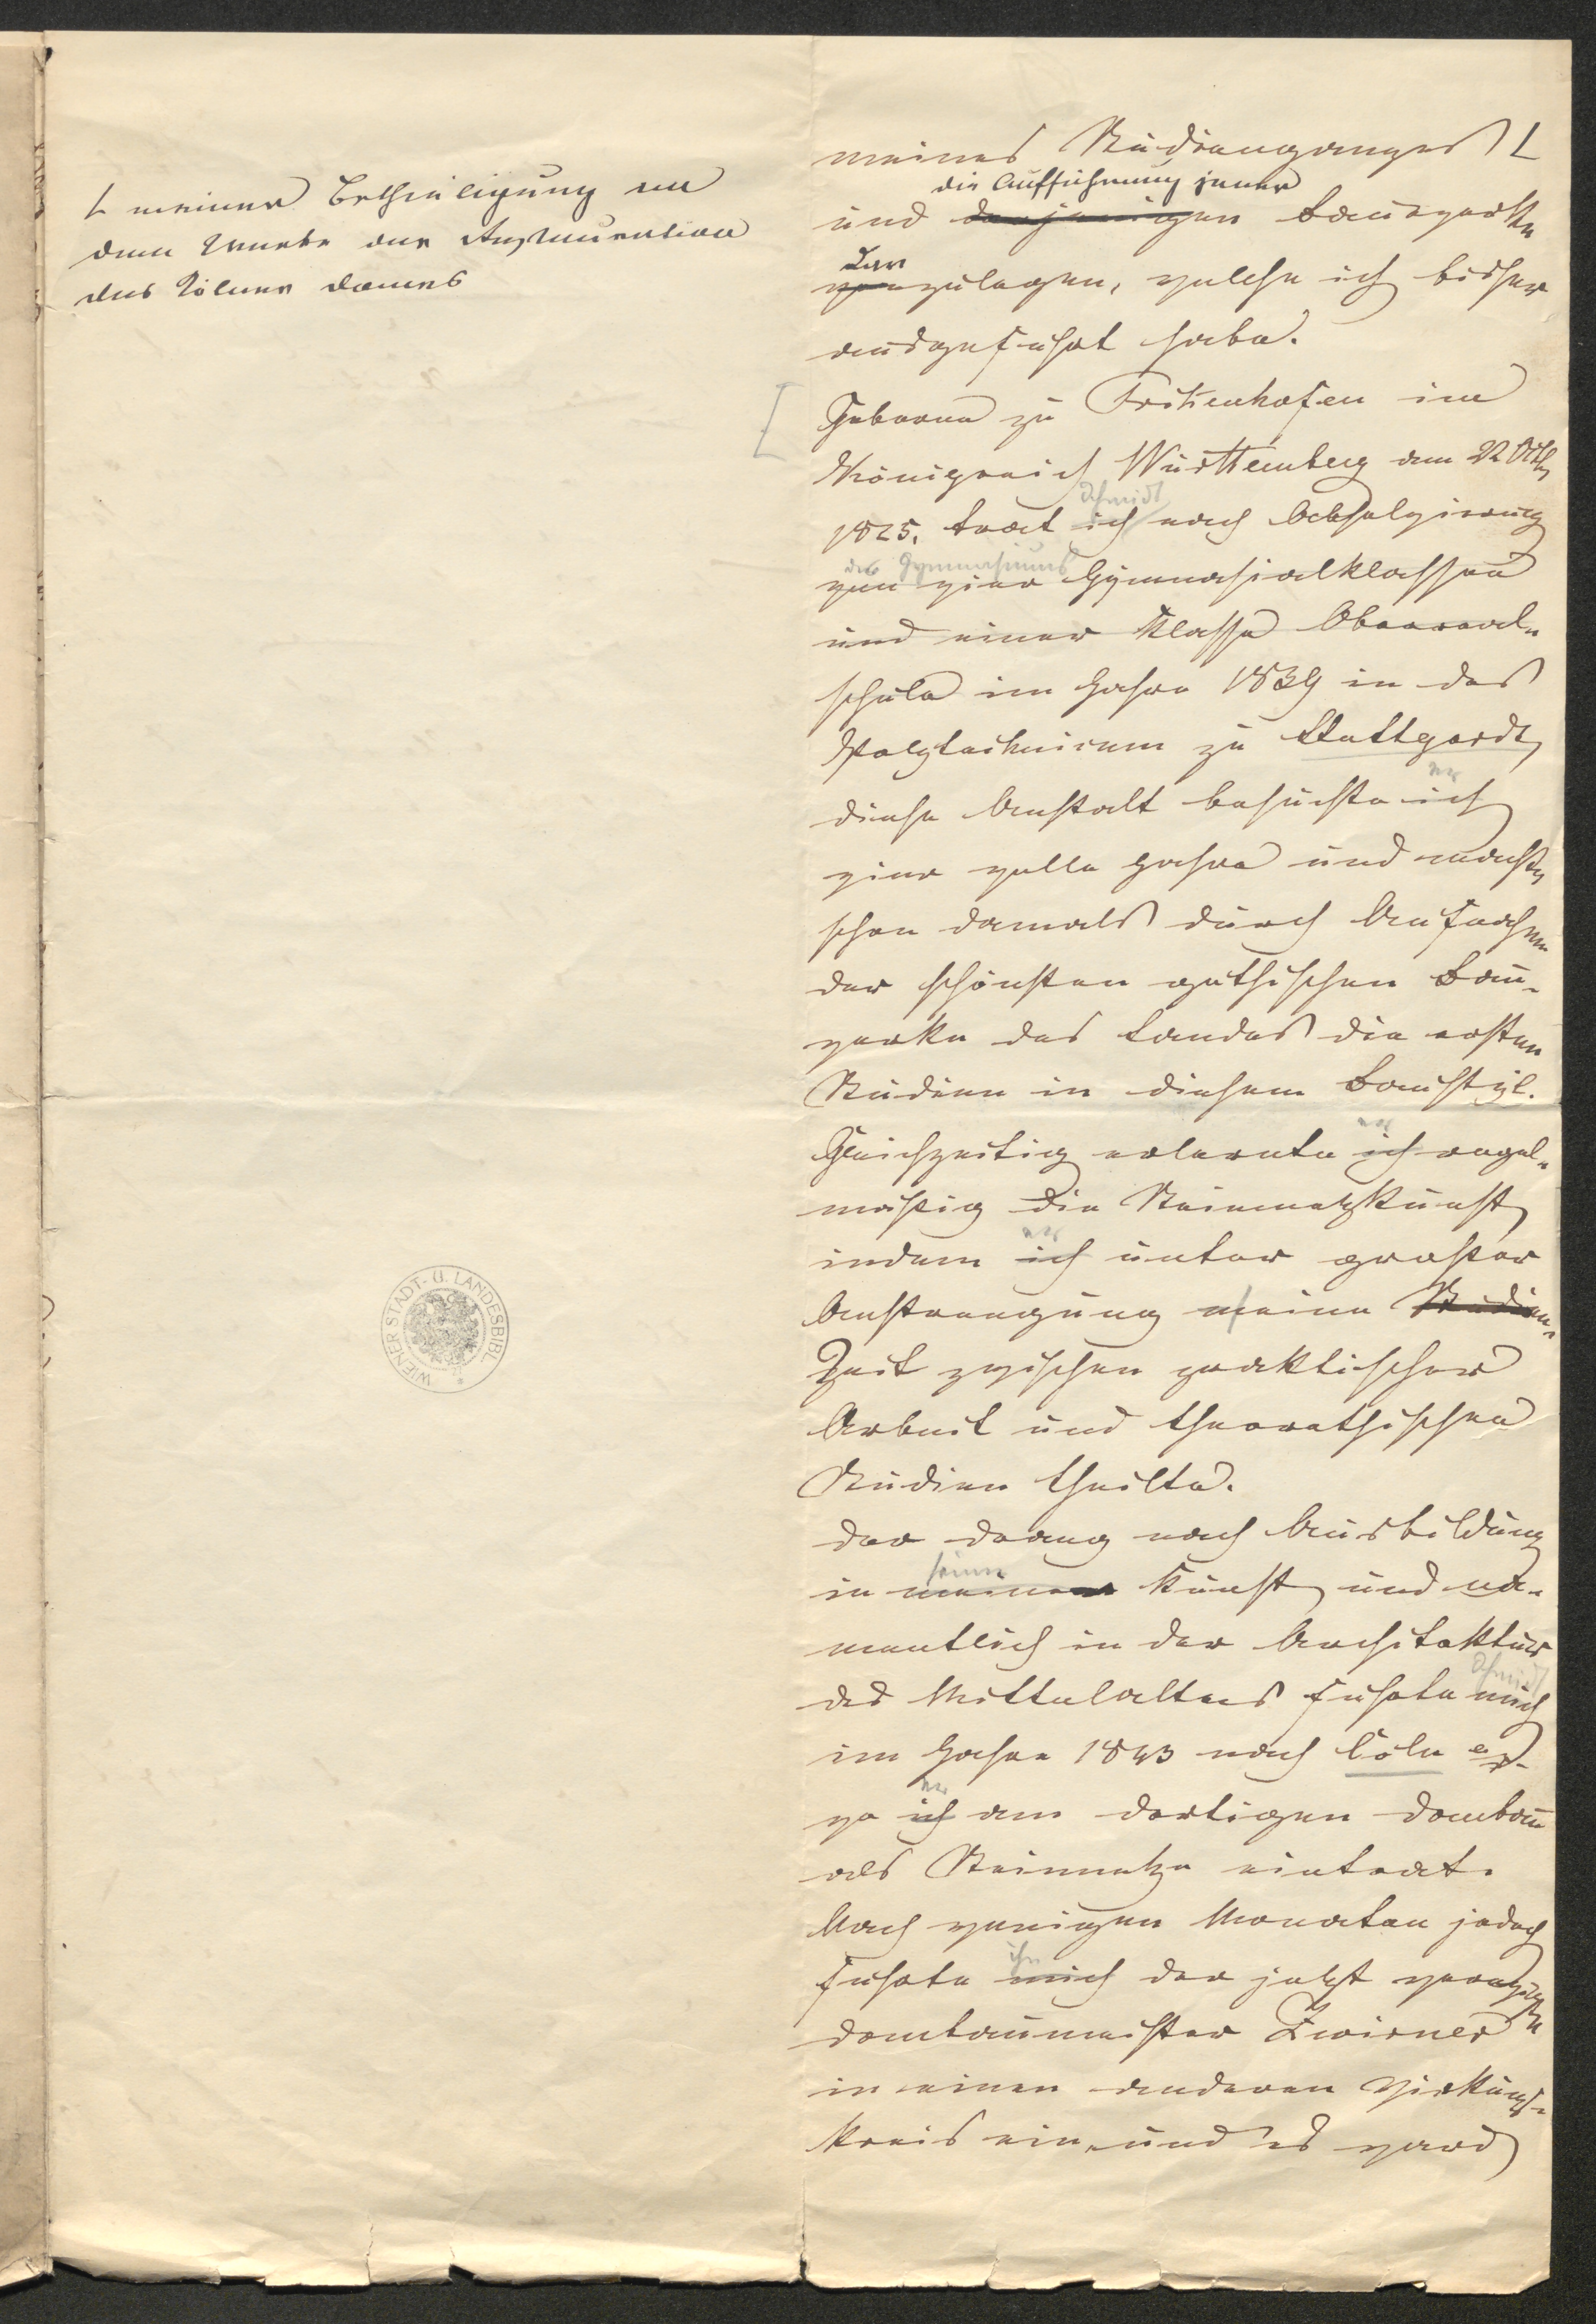 L meiner Betheiligung an
dem Werke der Restauration
des Kölner Domes
meines Studienganges L
die Aufführung jener
und derjenigen Bauwerke
dar
vorzulegen, welche ich bisher
ausgeführt habe.
Geboren zu Frikenhofen im
Königreich Württemberg den 22 Octb
Schmidt
1825, trat ich nach Absolvirung
des Gymnasiums
von vier Gymnasialklassen
und einer Klasse Oberreal-
schule im Jahre 1839 in das
Polytechnicum zu Stuttgardt,
er
diese Anstalt besuchte ich
vier volle Jahre und machte
schon damals durch Aufnahmen
der schönsten gothischen Bau-
werke des Landes die ersten
Studien in diesem Baustyl.
er
Gleichzeitig erlernte ich regel-
mäßig die Steinmetzkunst,
er
indem ich unter großer
Anstrengung meine Studien-
Zeit zwischen praktischer
Arbeit und theorethischen
Studien theilte.
Der Drang nach Ausbildung
seiner
in meiner Kunst, und na-
mentlich in der Architektur
Schmidt
des Mittelalters führte mich
im Jahre 1843 nach Cöln
er
wo ich am dortigen Dombau
als Steinmetze eintrat.
Nach wenigen Monaten jedoch
ihn
führte mich der jetzt verewigte
Dombaumeister Zwirner
in einen anderen Wirkungs-
kreis ein, und es ward
WIENER STADT- U. LANDESBIBL.